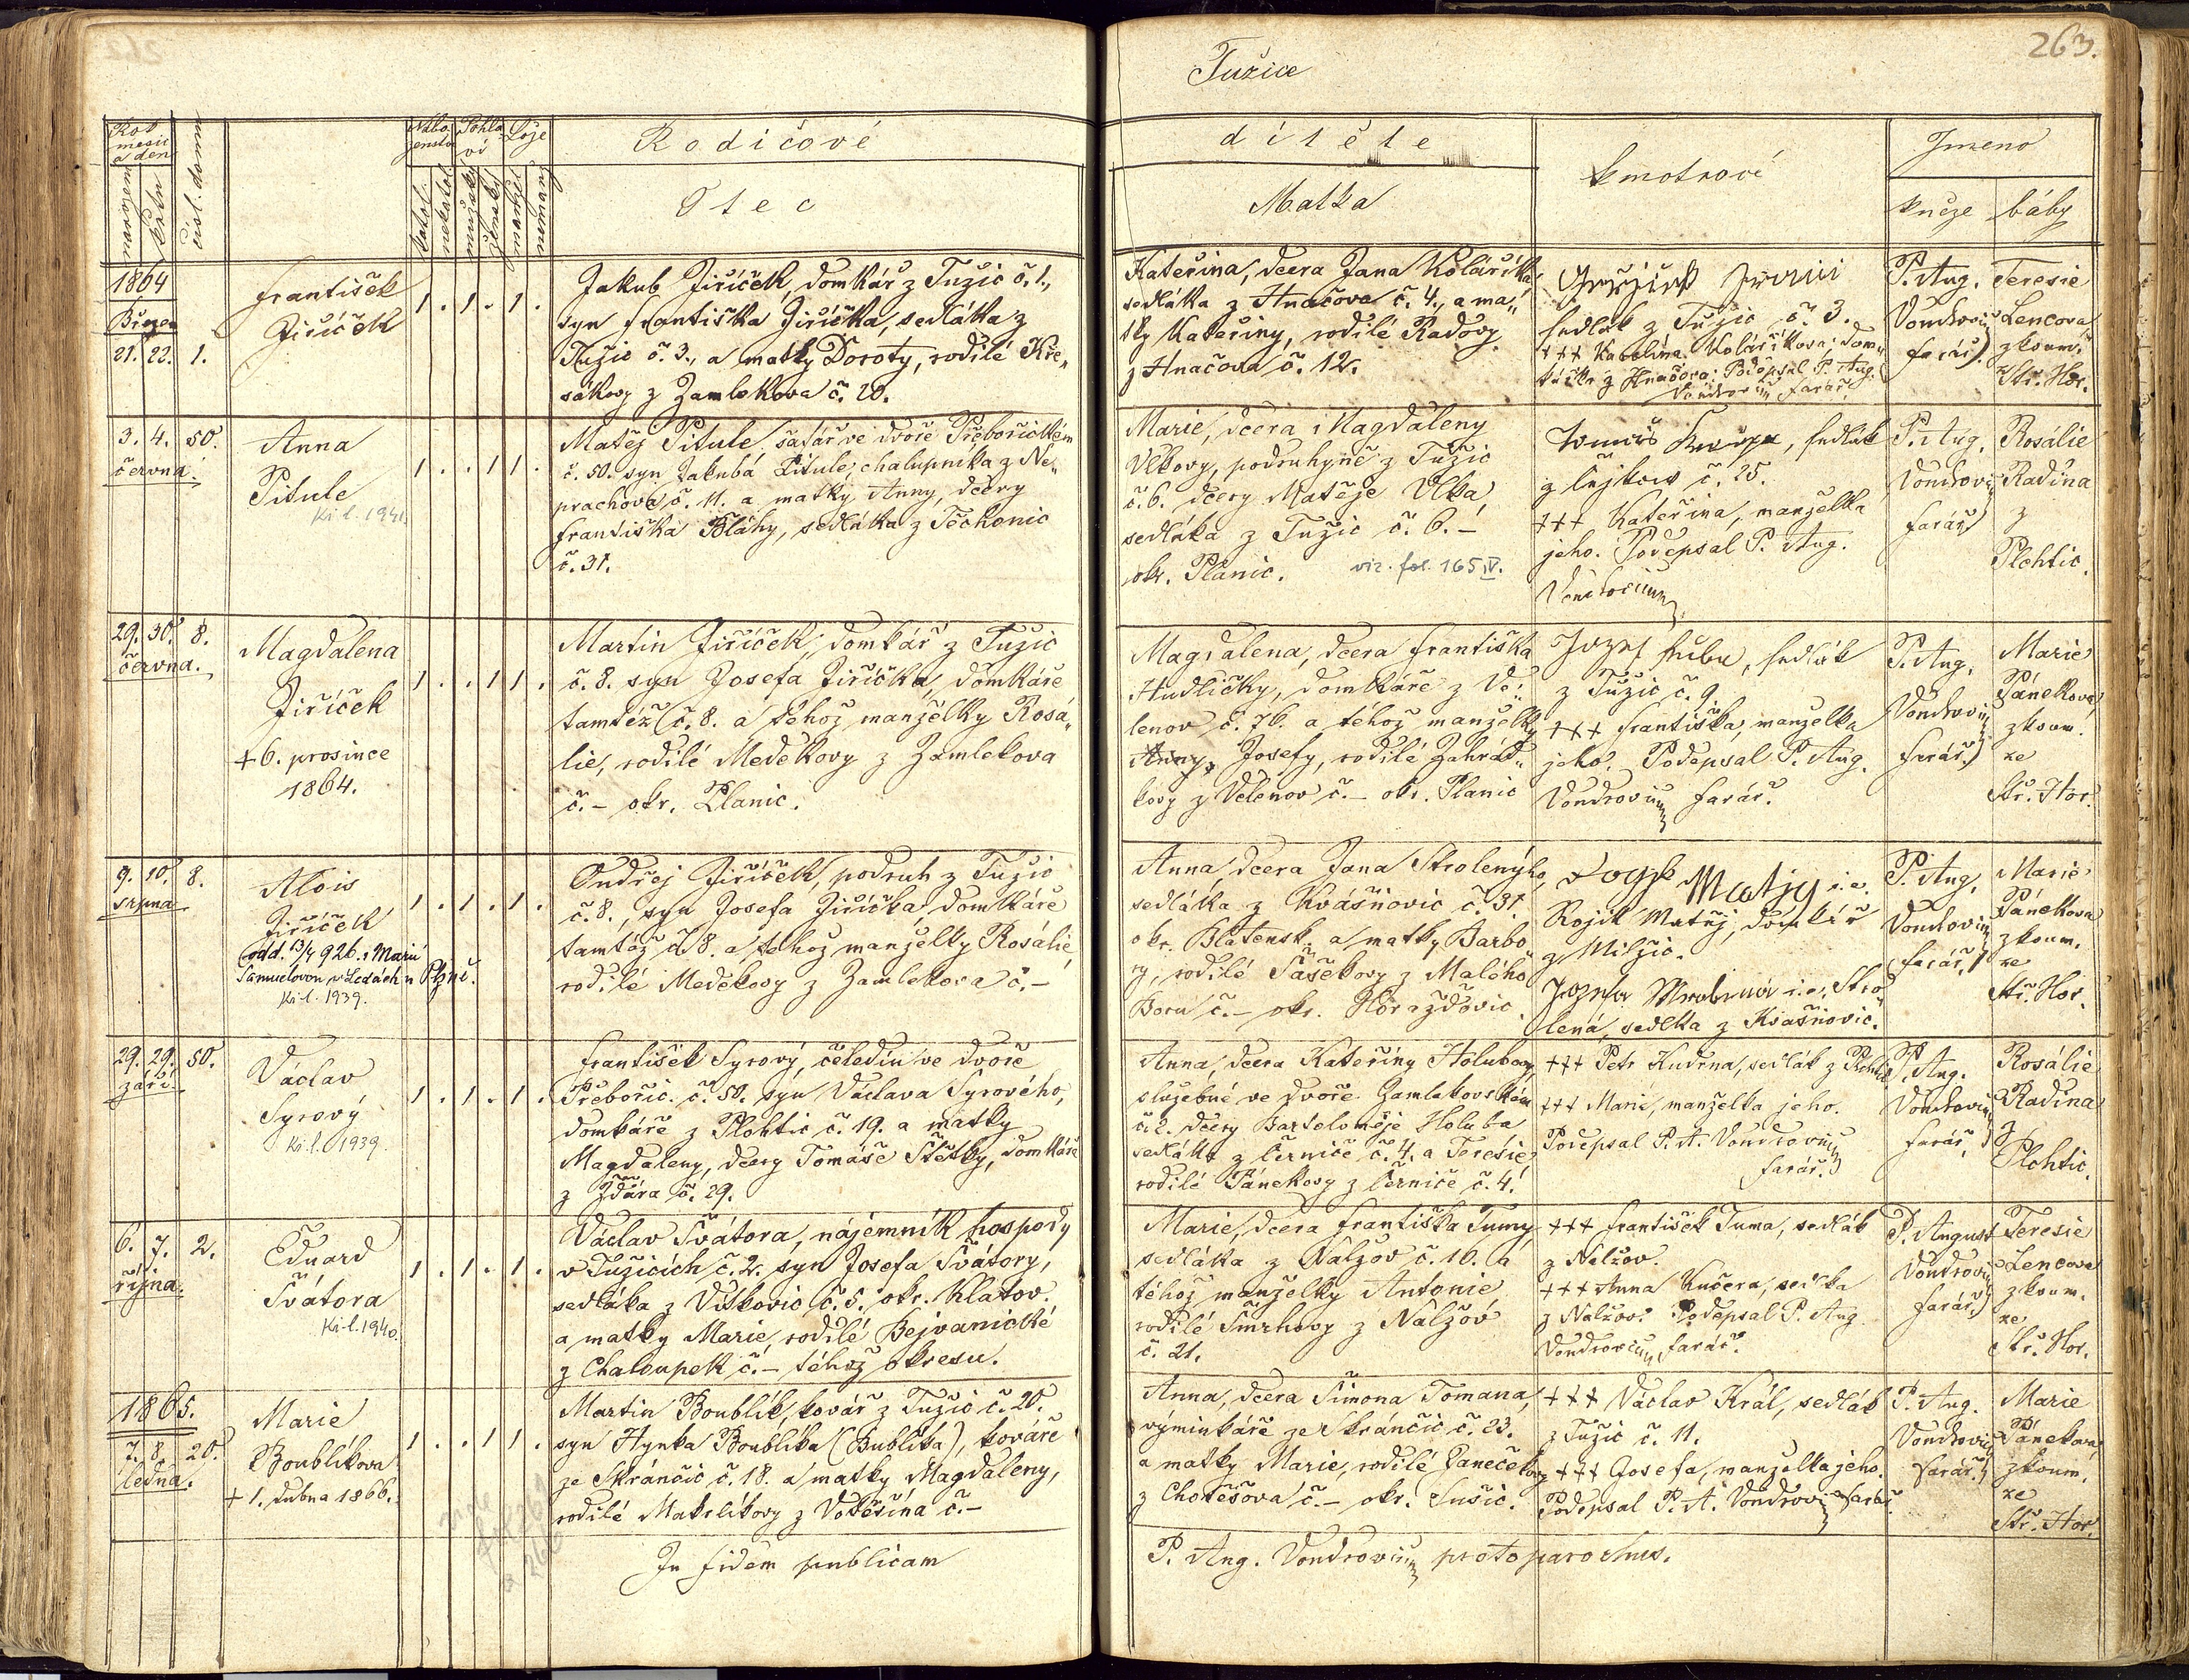 263.
Tužice
Rok
mesic
a den
narozen
křtu
čisl. domu
Nábo
ženstv
Pohla
ví
Lože
katol.
nekatol
mužský
ženský
manžel
nemanž
Rodičové
dítěte
Otec
Matka
kmotrové
Jmeno
kněze
báby
1864
Březen
21. 22. 1.
František
Jiříček
1 . 1 . 1 .
Jakub Jiříček, domkář z Tužic č. 1.,
syn Františka Jiříčka, sedláka z
Tužic č. 3., a matky Doroty, rodilé Kře„
sákovy z Zamlekova č. 20.
Kateřina, dcera Jana Kolaříka,
sedláka z Hnačova č. 4., a ma„
tky Kateřiny, rodilé Radovy
z Hnačova č. 12.
sedlák z Tužic č. 3.
+++ Karolína Kolaříkova, dom„
z Hnačova. Podepsal P. Aug.
Vondrovic farář.
P. Aug.
Vondrovic
farář.
Teresie
Lencova
zkouš.
Stř. Hor.
3. 4. 50.
června.
Anna
Pitule
Kř. l. 1941
1 . . 1 1 .
Matěj Pitule, šafář ve dvoře Předbořickém
č. 50. syn Jakuba Pitule, chalupníka z Ne„
prachova č. 11. a matky Anny, dcery
Františka Bláhy, sedláka z Těchonic
č. 31.
Marie, dcera Magdaleny
Vlkovy, podruhyně z Tužic
č. 6. dcery Matěje Vlka,
sedláka z Tužic č. 6. –
okr. Planic. viz. fol. 165 IV.
Tomáš, sedlák
z č. 25.
+++ Kateřina, manželka
jeho. Podepsal P. Aug.
Vondrovic
P. Aug.
Vondrovic
farář
Rosálie
Radina
z
Plchtic.
29. 30. 8.
června.
Magdalena
Jiříček
+ 6. prosince
1864.
1 . . 1 1 .
Martin Jiříček, domkář z Tužic
č. 8. syn Josefa Jiříčka, domkáře
tamtéž č. 8. a téhož manželky Rosá„
lie, rodilé Medekovy z Zamlekova
č. – okr. Planic.
Magdalena, dcera Františka
Hudličky, domkáře z Ve„
lenov č. 76. a téhož manželky
Anny, Josefy, rodilé Zahrád„
kovy z Velenov č. – okr. Planic
Jozef, sedlák
z Tužic č. 9.
+++ Františka, manželka
jeho. Podepsal P. Aug.
Vondrovic farář.
P. Aug.
Vondrovic
farář.
Marie
Pánekova
zkoum.
ze
Stř. Hor.
9. 10. 8.
srpna
Alois
Jiříček
odd. 13/4 926. s Marií
Samuelovou v Ledcích u Plzně.
Kř. l. 1939.
1 . 1 . 1 .
Ondřej Jiříček, podruh z Tužic
č. 8., syn Josefa Jiříčka, domkáře
tamtéž č. 8. a téhož manželky Rosálie,
rodilé Medekovy z Zamlekova č. –
Anna, dcera Jana Strolenýho,
sedláka z Kvášňovic č. 31.
okr. Blatensk. a matky Barbo„
ry, rodilé Šašekovy z Malého
Boru č. – okr. Horažďovic.
Matjg i.e.
Rojík Matěj, domkář
z Milžic.
Jozefa i.e. Stro
lená, sedlka z Kvašňovic.
P. Aug.
Vondrovic
farář,
Marie
Pánekova
zkoum.
ze
Stř. Hor.
29. 29. 50.
září.
Václav
Syrový
Kř. l. 1939.
1 . 1 . 1 .
František Syrový, čeledín ve dvoře
Předbořic. č. 50. syn Václava Syrového,
domkáře z Plchtic č. 19. a matky
Magdaleny, dcery Tomáše Štětky, domkáře
z Ždára č. 29.
Anna, dcera Kateřiny Holubovy,
služebné ve dvoře Zamlekovském
č. 2. dcery Bartoloměje Holuba
sedláka z Černice č. 4. a Terésie
rodilé Pánekovy z Černice č. 4.
+++ Petr Kudrna, sedlák z Plchtic
+++ Marie, manželka jeho.
Podepsal P. A. Vondrovic
farář.
P. Aug.
Vondrovic
farář,
Rosálie
Radina
z
Plchtic.
6. 7. 2.
října.
Eduard
Švátora
Kř. l. 1940.
1 . 1 . 1 .
Václav Švátora, nájemník hospody
v Tužicích č. 2. syn Josefa Švátory,
sedláka z Vitkovic č. 5. okr. Klatov.
a matky Marie, rodilé Bejvanické
z Chaloupek č. – téhož okresu.
Marie, dcera Františka Tumy
sedláka z Nalžov č. 16. a
téhož manželky Antonie
rodilé Smrhovy z Nalžov
č. 21.
+++ František Tuma, sedlák
z Nalžov.
+++ Anna Kučera, sedlka
z Nalžov. Podepsal P. Aug.
Vondrovic farář.
P. August
Vondrovic
farář,
Teresie
Lencova
zkoum.
ze
Stř. Hor.
1865.
7. 8. 20.
ledna.
Marie
Boublíkova
+ 1. dubna 1866.
1 . . 1 1 .
Martin Boublík, kovář z Tužic č. 20.
syn Hynka Boublíka (Bublíka), kováře
ze Skránčic č. 18. a matky Magdaleny,
rodilé Makrlíkovy z Votěšína č. –
Anna, dcera Šimona Tomana,
výminkáře ze Skránčic č. 23.
a matky Marie, rodilé Panečekovy
z Chotěšova č. – okr. Sušic.
+++ Václav Král, sedlák
z Tužic č. 11.
+++ Josefa, manželka jeho.
Podepsal P. A. Vondrovic farář.
P. Aug.
Vondrovic
farář.
Marie
Pánekova
zkoum.
ze
Stř. Hor.
In fidem publicam
P. Aug. Vondrovic protoparochus.